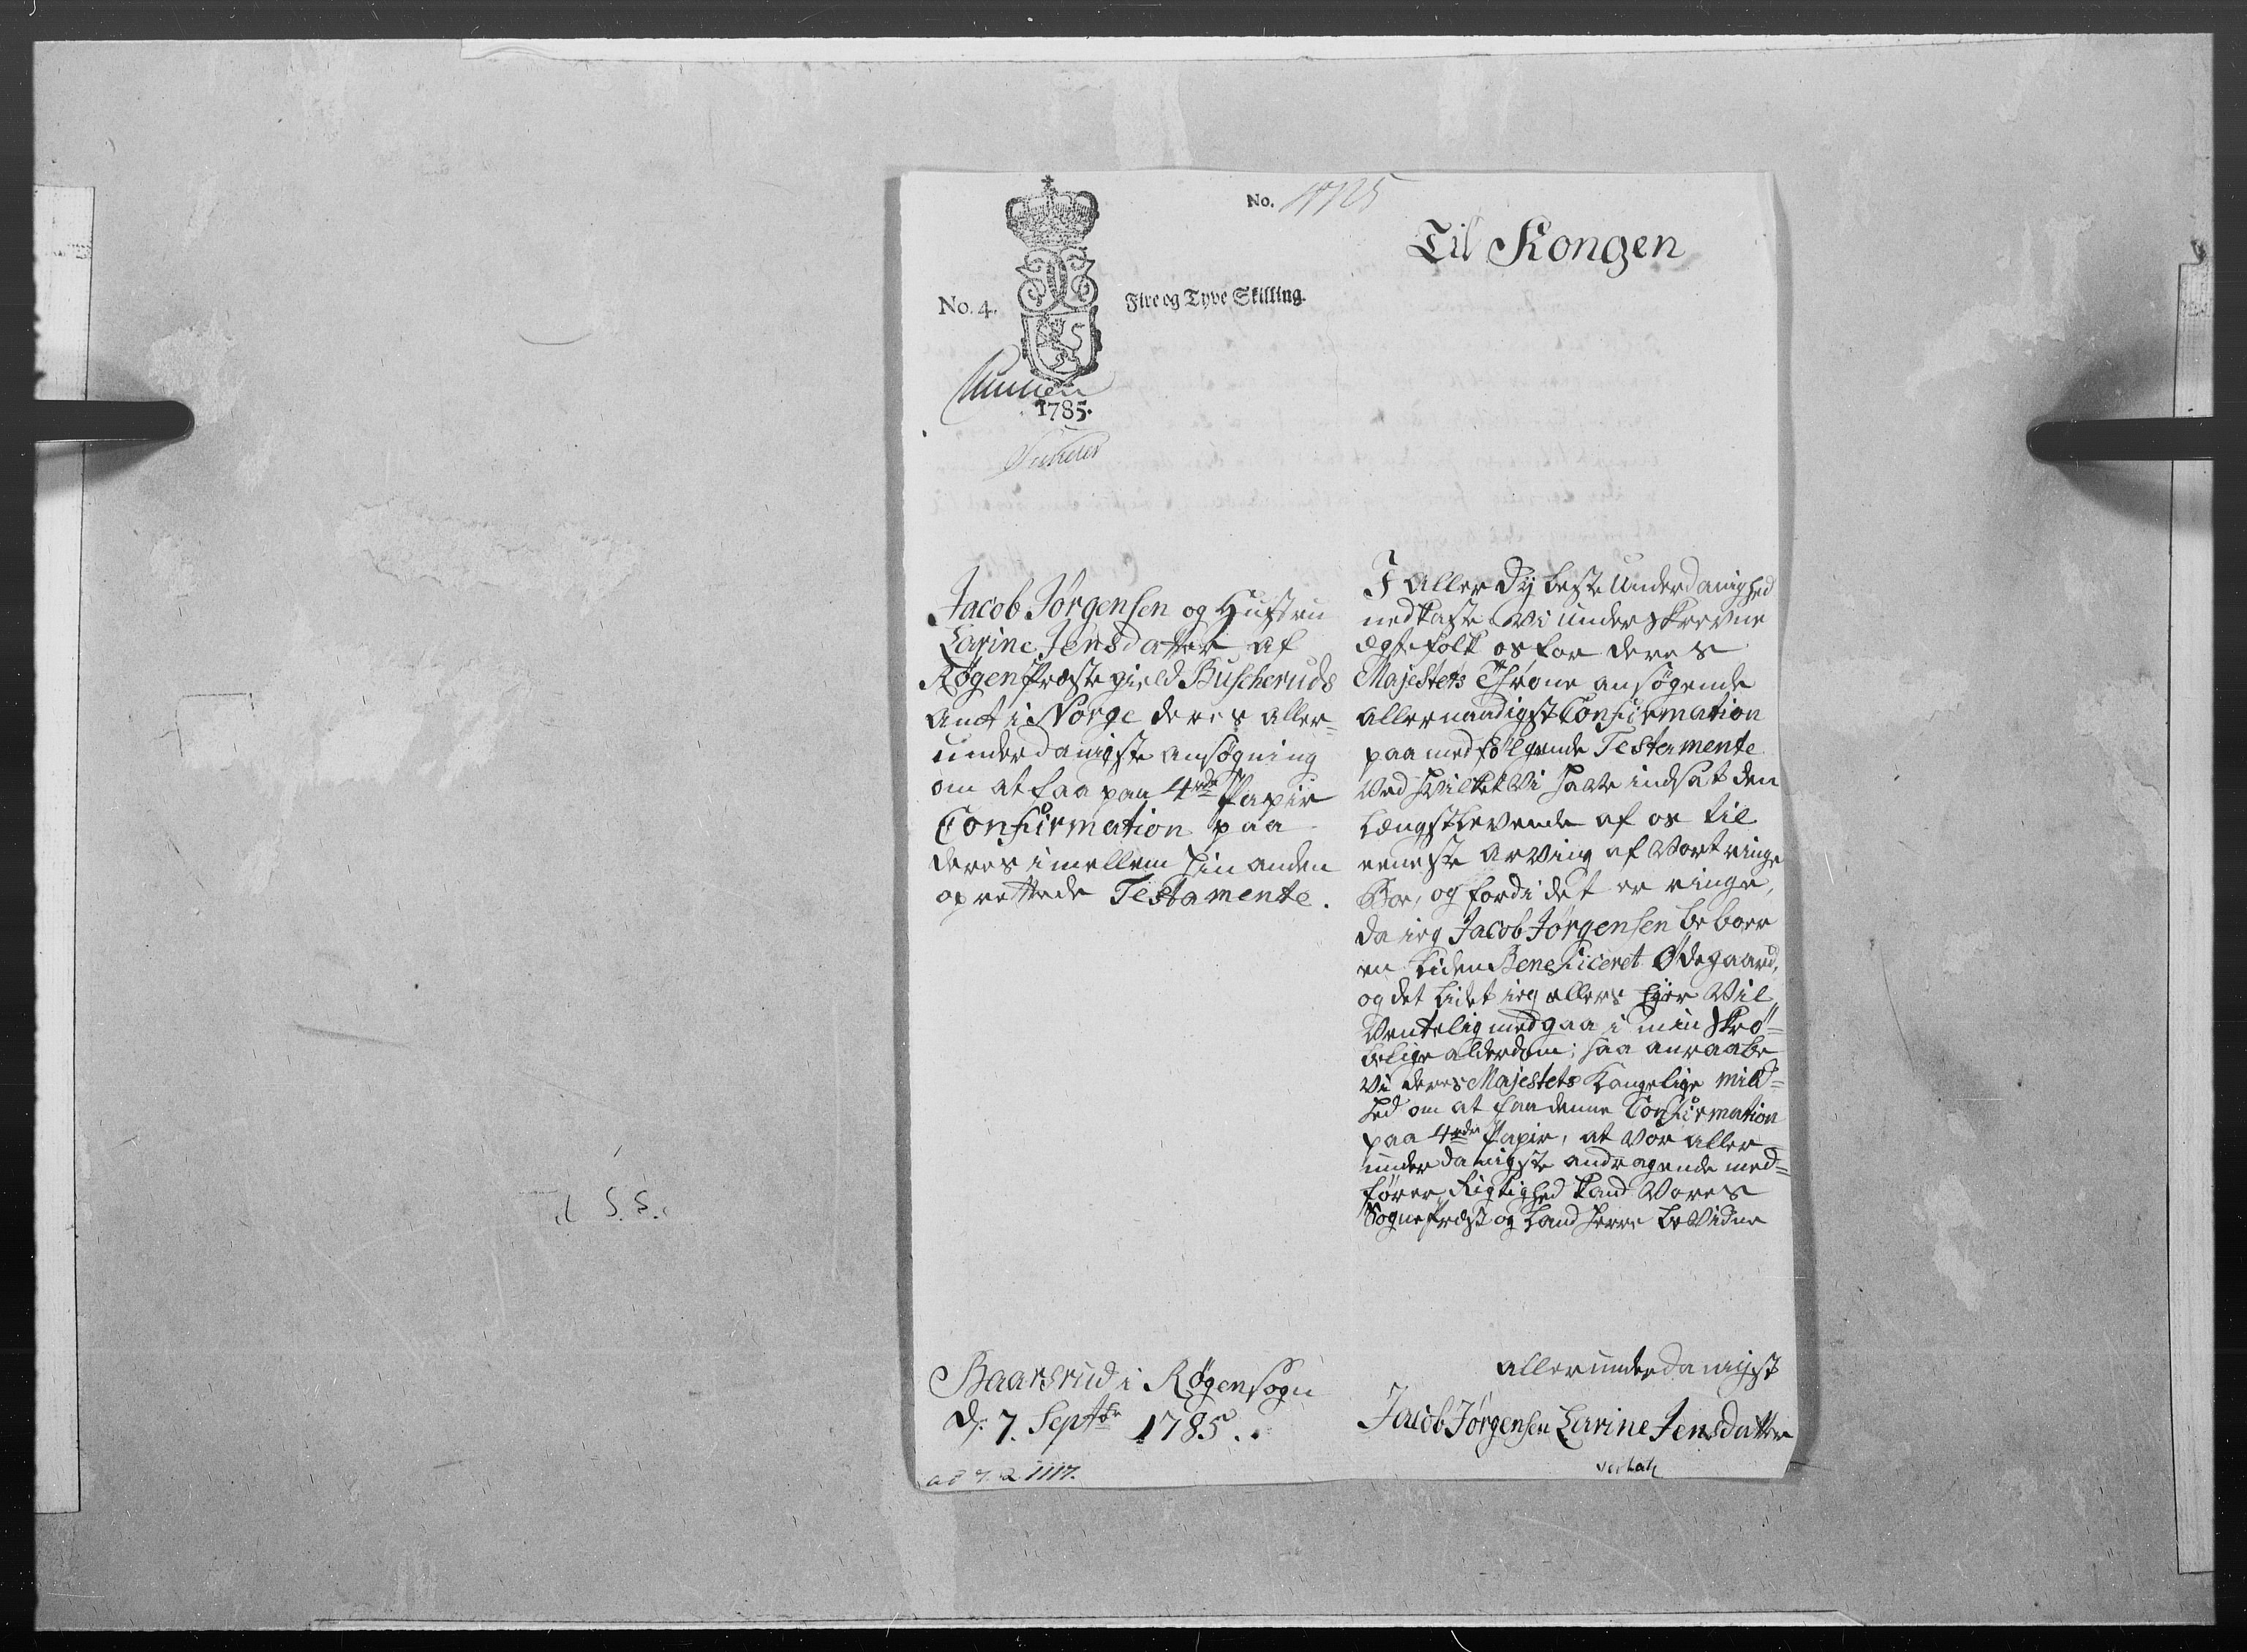 No. 17125
Til Kongen
No. 4.
Fire og Tyve Skilling.
1785.
Jacob Jørgensen og Hustru
Larine Jensdatter af
Røgen Præstegield Buscheruds
Amt i Norge deres aller=
underdanigste ansøgning
om at faa paa 4rde Papir
Confirmation paa
deres imellem hinanden
oprettede Testamente.
I Aller Dybeste Underdanighed
nedkaste Vi underskrevne
Ægtefolk os for deres
Majestets Throne ansøgende
allernaadigst Confirmation
paa medfølgende Testamente
Ved hvilket Vi have indsat den
Længstlevende af os til
eeneste arving af Vort ringe
Boe, og fordi det er ringe,
da ieg Jacob Jørgensen beboer
en liden Beneficeret Ødegaard,
og det lidet ieg ellers Ejer Vil
Ventelig medgaa i min skrø=
belige alderdom; saa anraabe
Vi deres Majestets Kongelige mild=
hed om at faa denne Confirmation
paa 4rde Papir, at Vor aller=
underdanigste andragende med=
fører Rigtighed kand Vores
Sognepræst og Land Herre beVidne
Baarsrud i Røgen Sogn
d: 7. Septbr 1785.
allerunderdanigst
Jacob Jørgensen Larine Jensdatter
1117.
S. S.